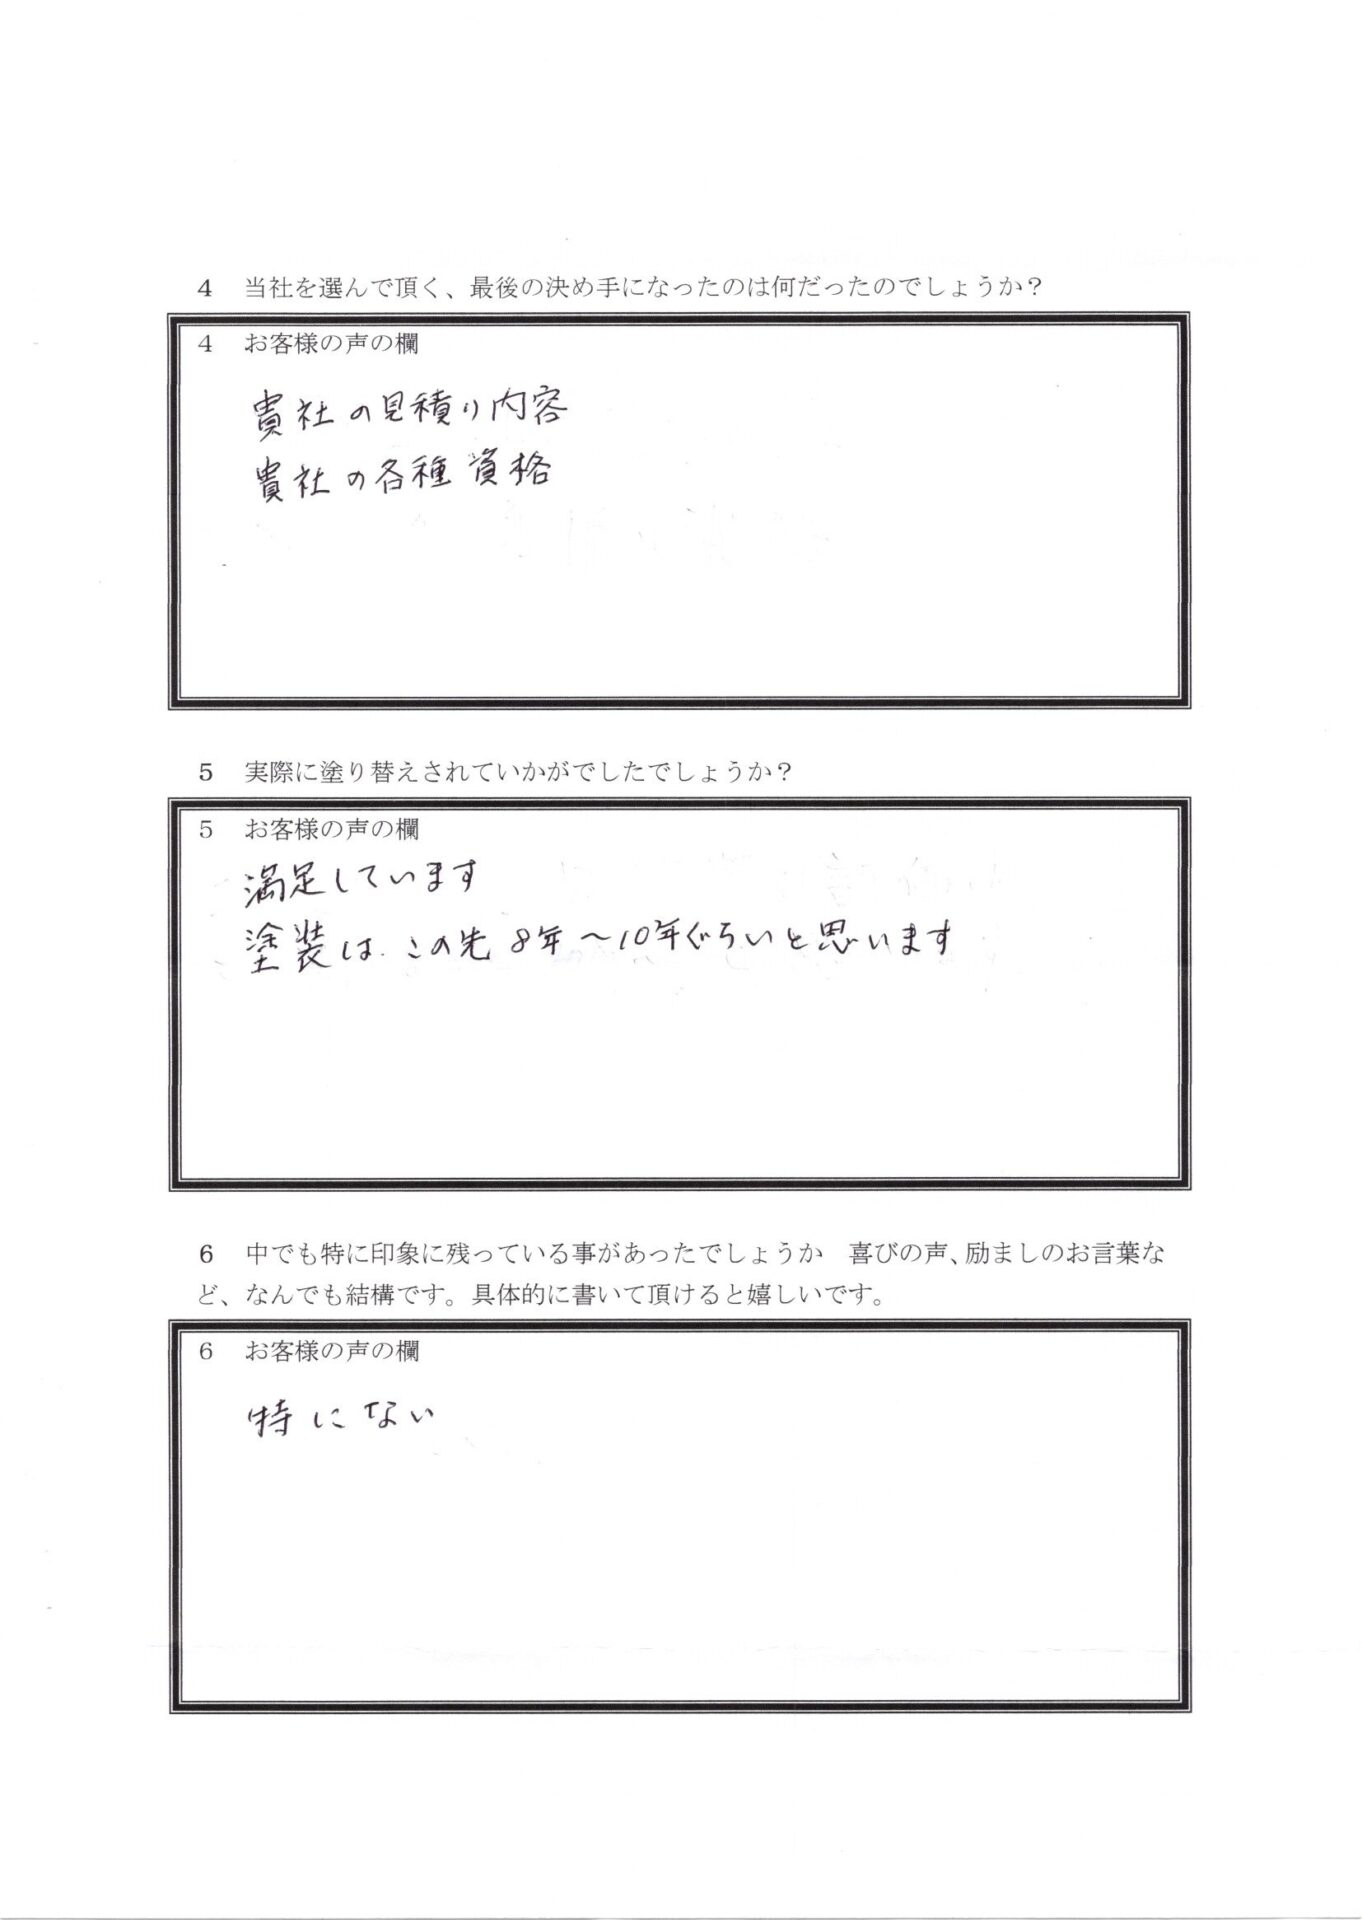 4　当社を選んで頂く、最後の決め手になったのは何だったのでしょうか？
4　お客様の声の欄
貴社の見積り内容
貴社の各種資格
5　実際に塗り替えされていかがでしたでしょうか？
5　お客様の声の欄
満足しています
塗装は、この先8年～10年ぐらいと思います
6　中でも特に印象に残っている事があったでしょうか　喜びの声、励ましのお言葉な
ど、なんでも結構です。具体的に書いて頂けると嬉しいです。
6　お客様の声の欄
特にない